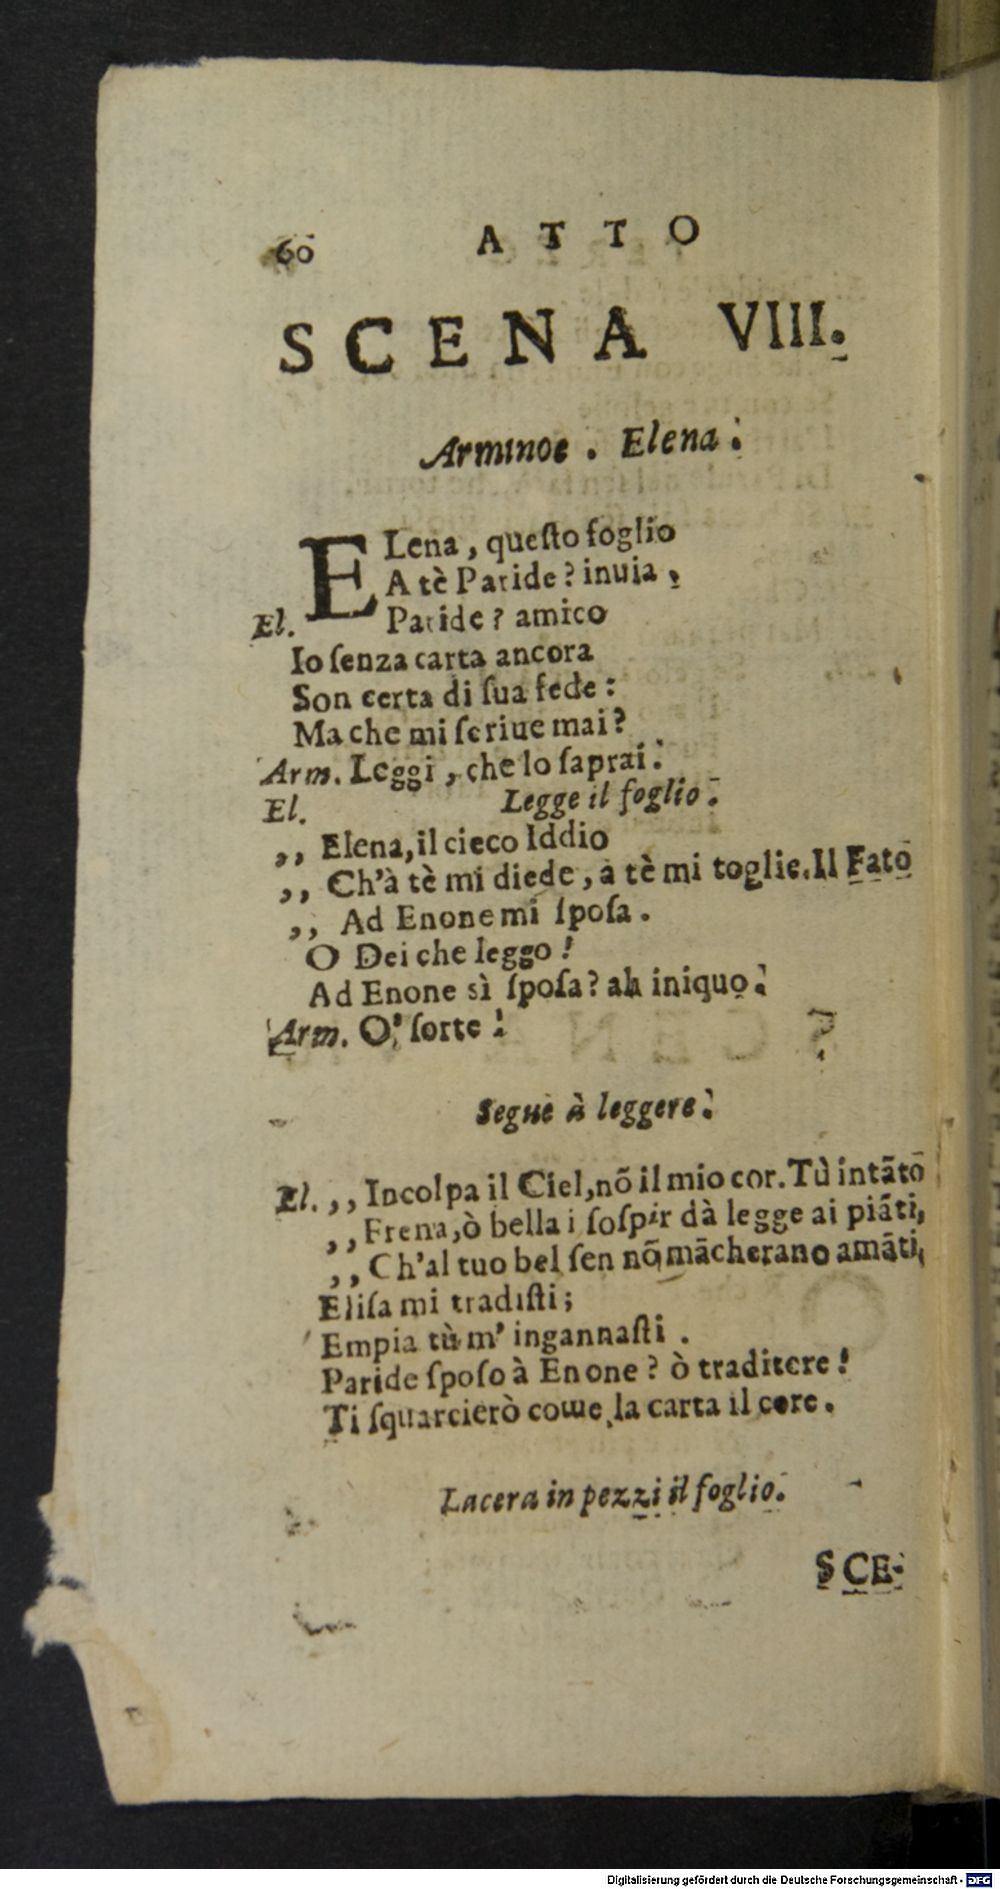 60 ATTO
SCENA VIII.
Arminoe. Elena.
ELena, questo foglio
A tè Paride? inuia.
El. Paride? amico
Io senza carta ancora
Son certa di sua fede:
Ma che mi scriue mai?
Arm. Leggi, che lo saprai.
El. Legge il foglio.
,, Elena, il cieco Iddio
,, Ch'à tè mi diede, a tè mi toglie. Il Fato
,, Ad Enone mi sposa.
O Dei che leggo!
Ad Enone sì sposa? ah iniquo!
Arm. O' sorte!
Segue à leggere.
El. ,, Incolpa il Ciel, nõ il mio cor. Tù intãto
,, Frena, ò bella i sospir dà legge ai piãti,
,, Ch'al tuo bel sen nõ mãcherano amãti,
Elisa mi tradisti;
Empia tù m' ingannasti.
Paride sposo à Enone? ò traditere!
Ti squarcierò come la carta il core.
Lacera in pezzi il foglio.
SCE-
Digitalisierung gefördert durch die Deutsche Forschungsgemeinschaft - DFG